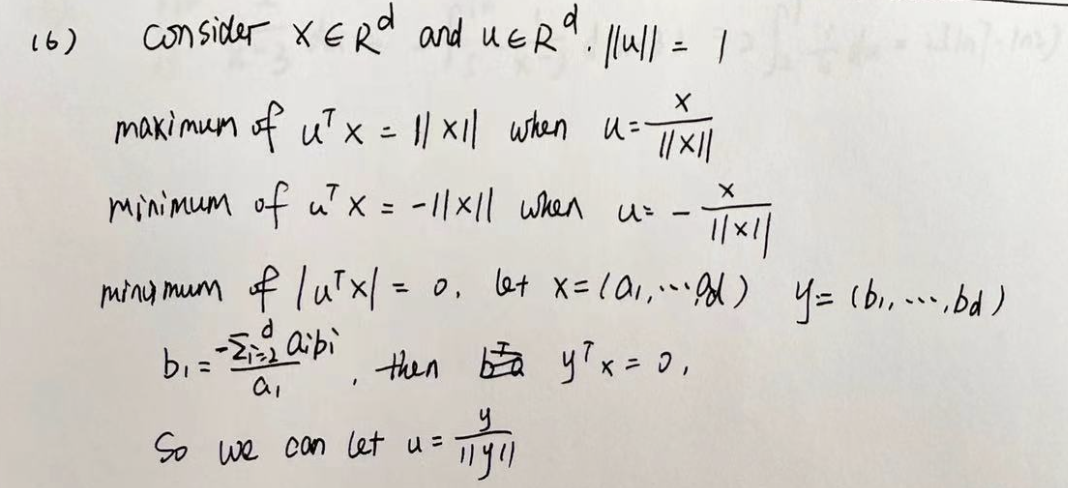 (6) consider x ∈ R^d and u ∈ R^d. ||u|| = 1
maximum of u^T x = ||x|| when u = x/||x||
minimum of u^T x = -||x|| when u = - x/||x||
minimum of |u^T x| = 0. let x = (a_1, ... a_d) y = (b_1, ..., b_d)
b_1 = -∑_{i=2}^d a_i b_i / a_1 , then y^T x = 0,
So we can let u = y/||y||